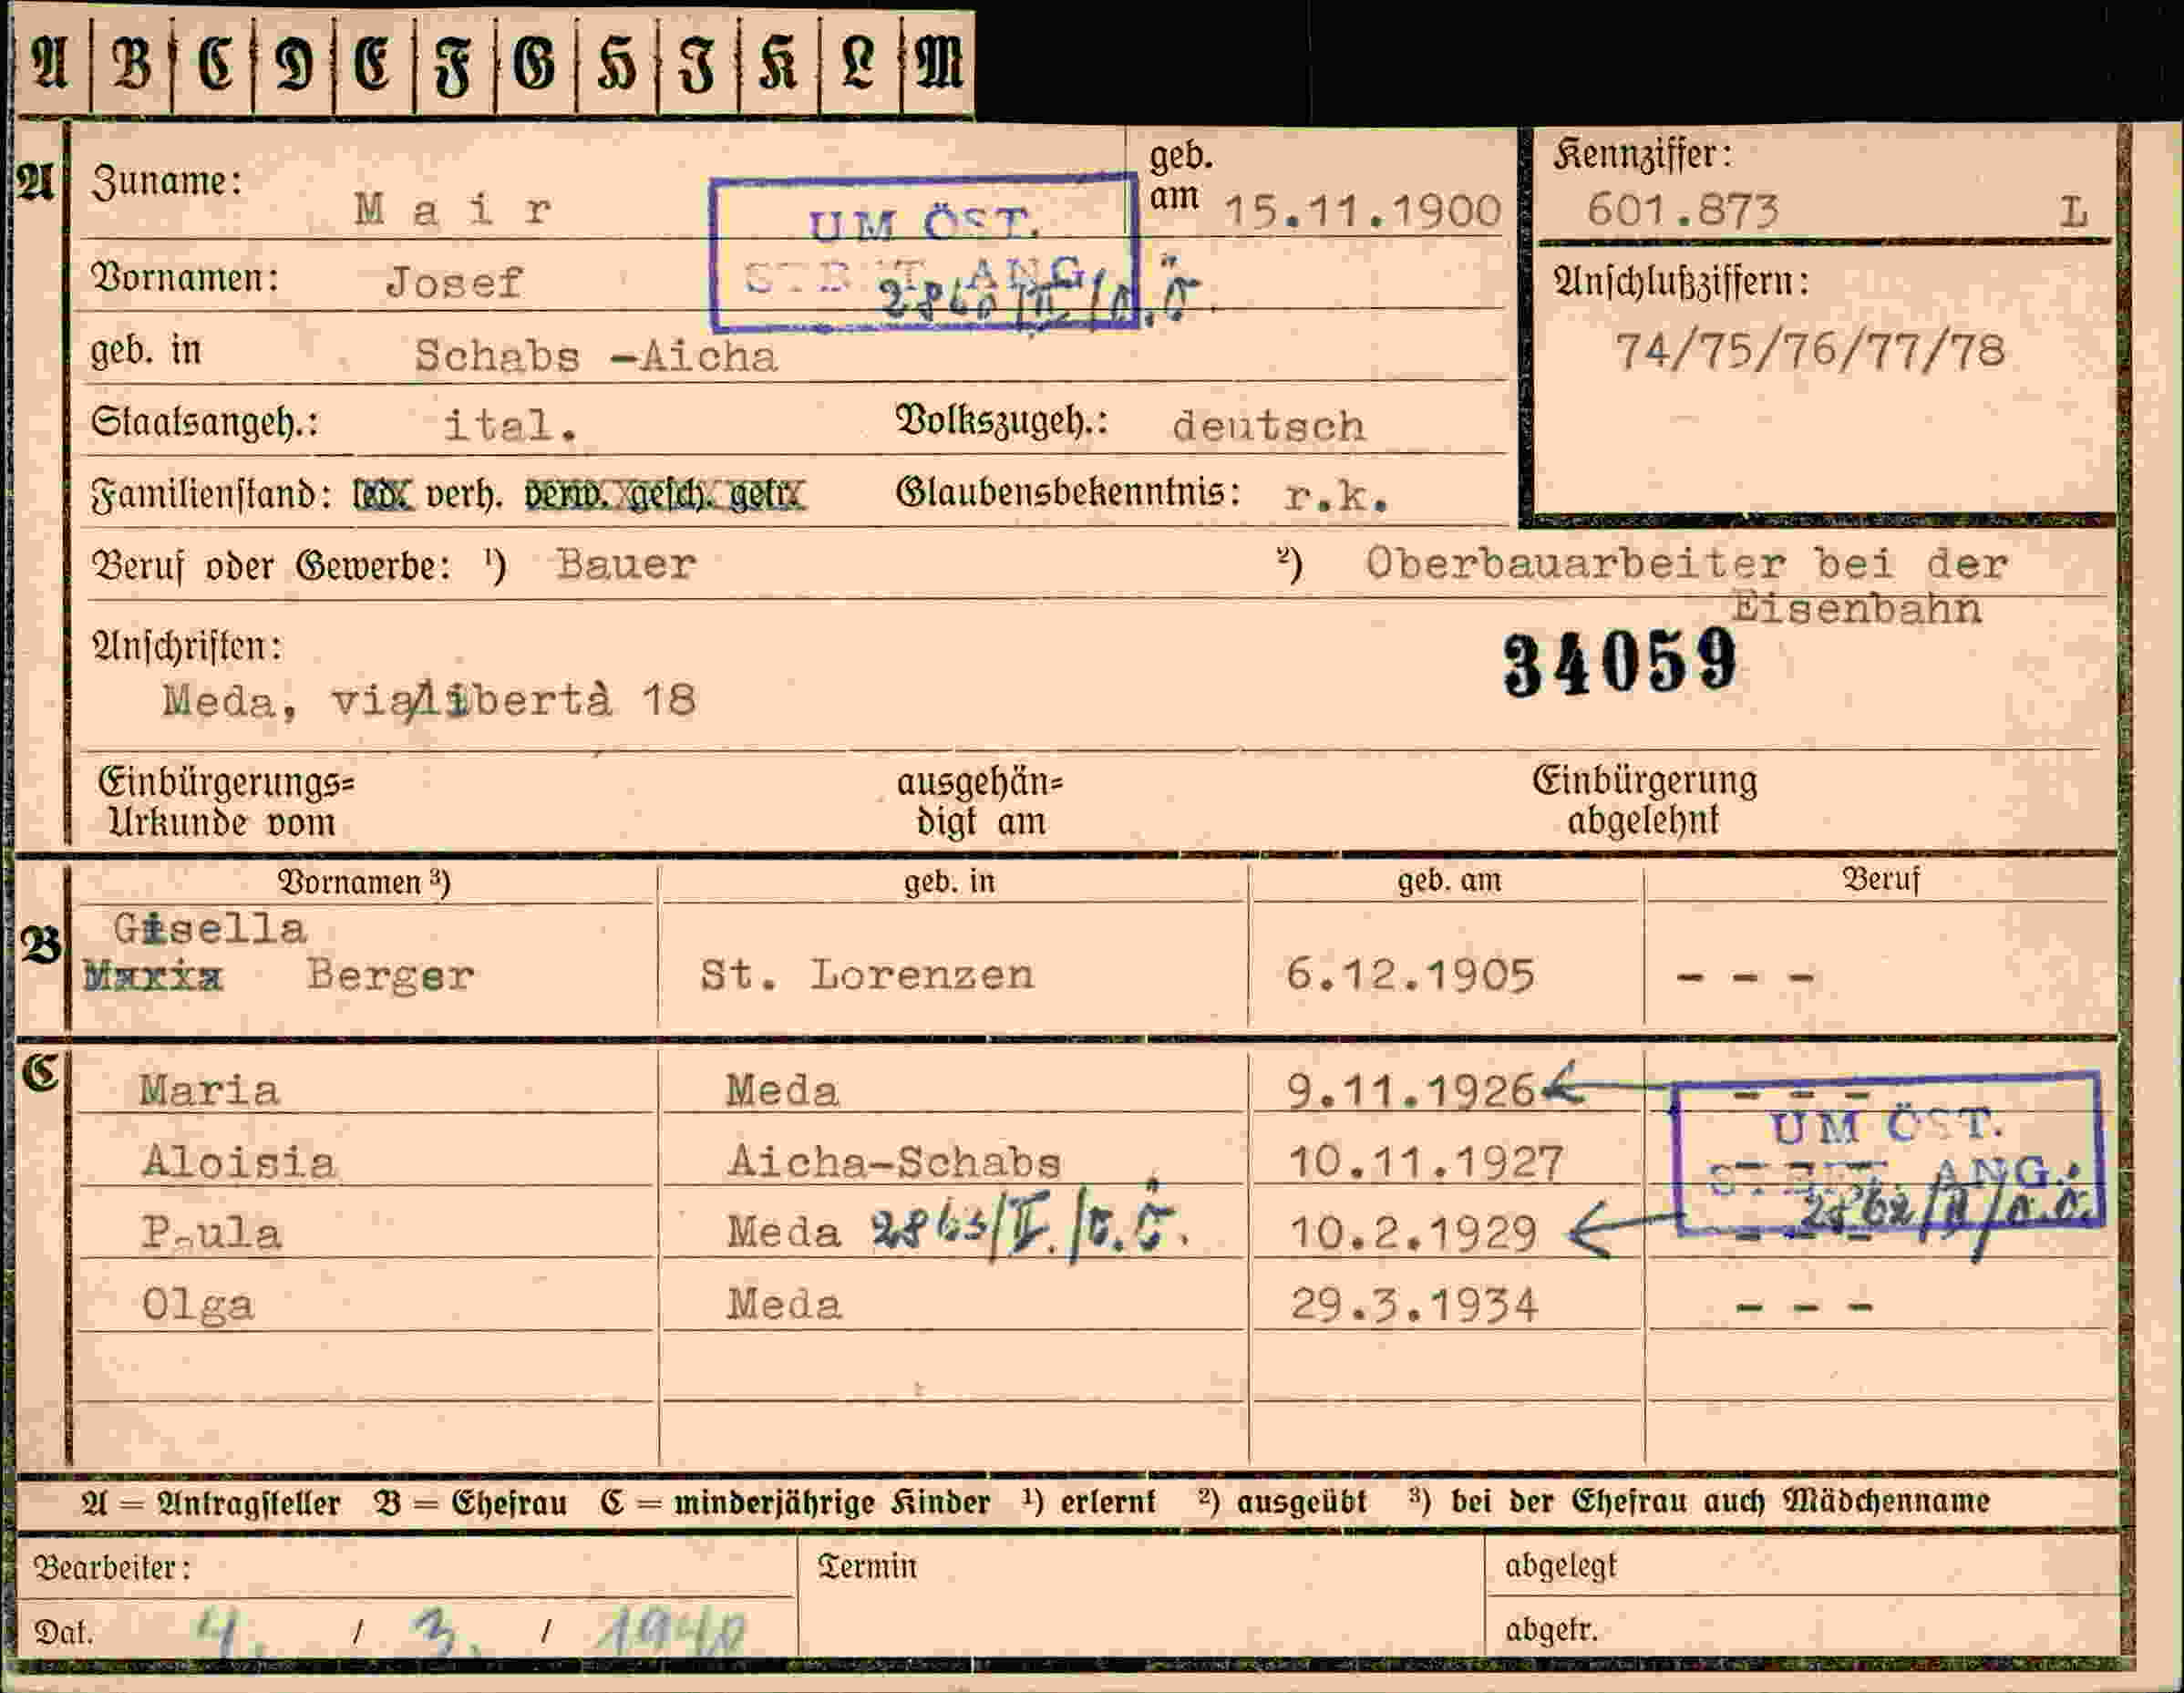 A B C D E F G H I K L M
A Zuname: Mair geb. am 15.11.1900
Kennziffer: 601.873 L
UM ÖST.
Vornamen: Josef
ANG.
Anschlußziffern:
74/75/76/77/78
geb. in Schabs -Aicha
Staatsangeh.: ital. Volkszugeh.: deutsch
Familienstand: led. verh. verw. gesch. getr. Glaubensbekenntnis: r.k.
Beruf oder Gewerbe: ¹) Bauer ²) Oberbauarbeiter bei der
Eisenbahn
Anschriften: 34059
Meda, via/libertà 18
Einbürgerungs= ausgehän= Einbürgerung
Urkunde vom digt am abgelehnt
Vornamen ³) geb. in geb. am Beruf
B Gisella
Maria Berger St. Lorenzen 6.12.1905 - - -
C Maria Meda 9.11.1926 - - -
UM ÖST.
Aloisia Aicha-Schabs 10.11.1927
ANG.
P-ula Meda 2863/II./V.Ö. 10.2.1929 - - -
Olga Meda 29.3.1934 - - -
A = Antragsteller B = Ehefrau C = minderjährige Kinder ¹) erlernt ²) ausgeübt ³) bei der Ehefrau auch Mädchenname
Bearbeiter: Termin abgelegt
Dat. 4. / 3. / 1940 abgetr.